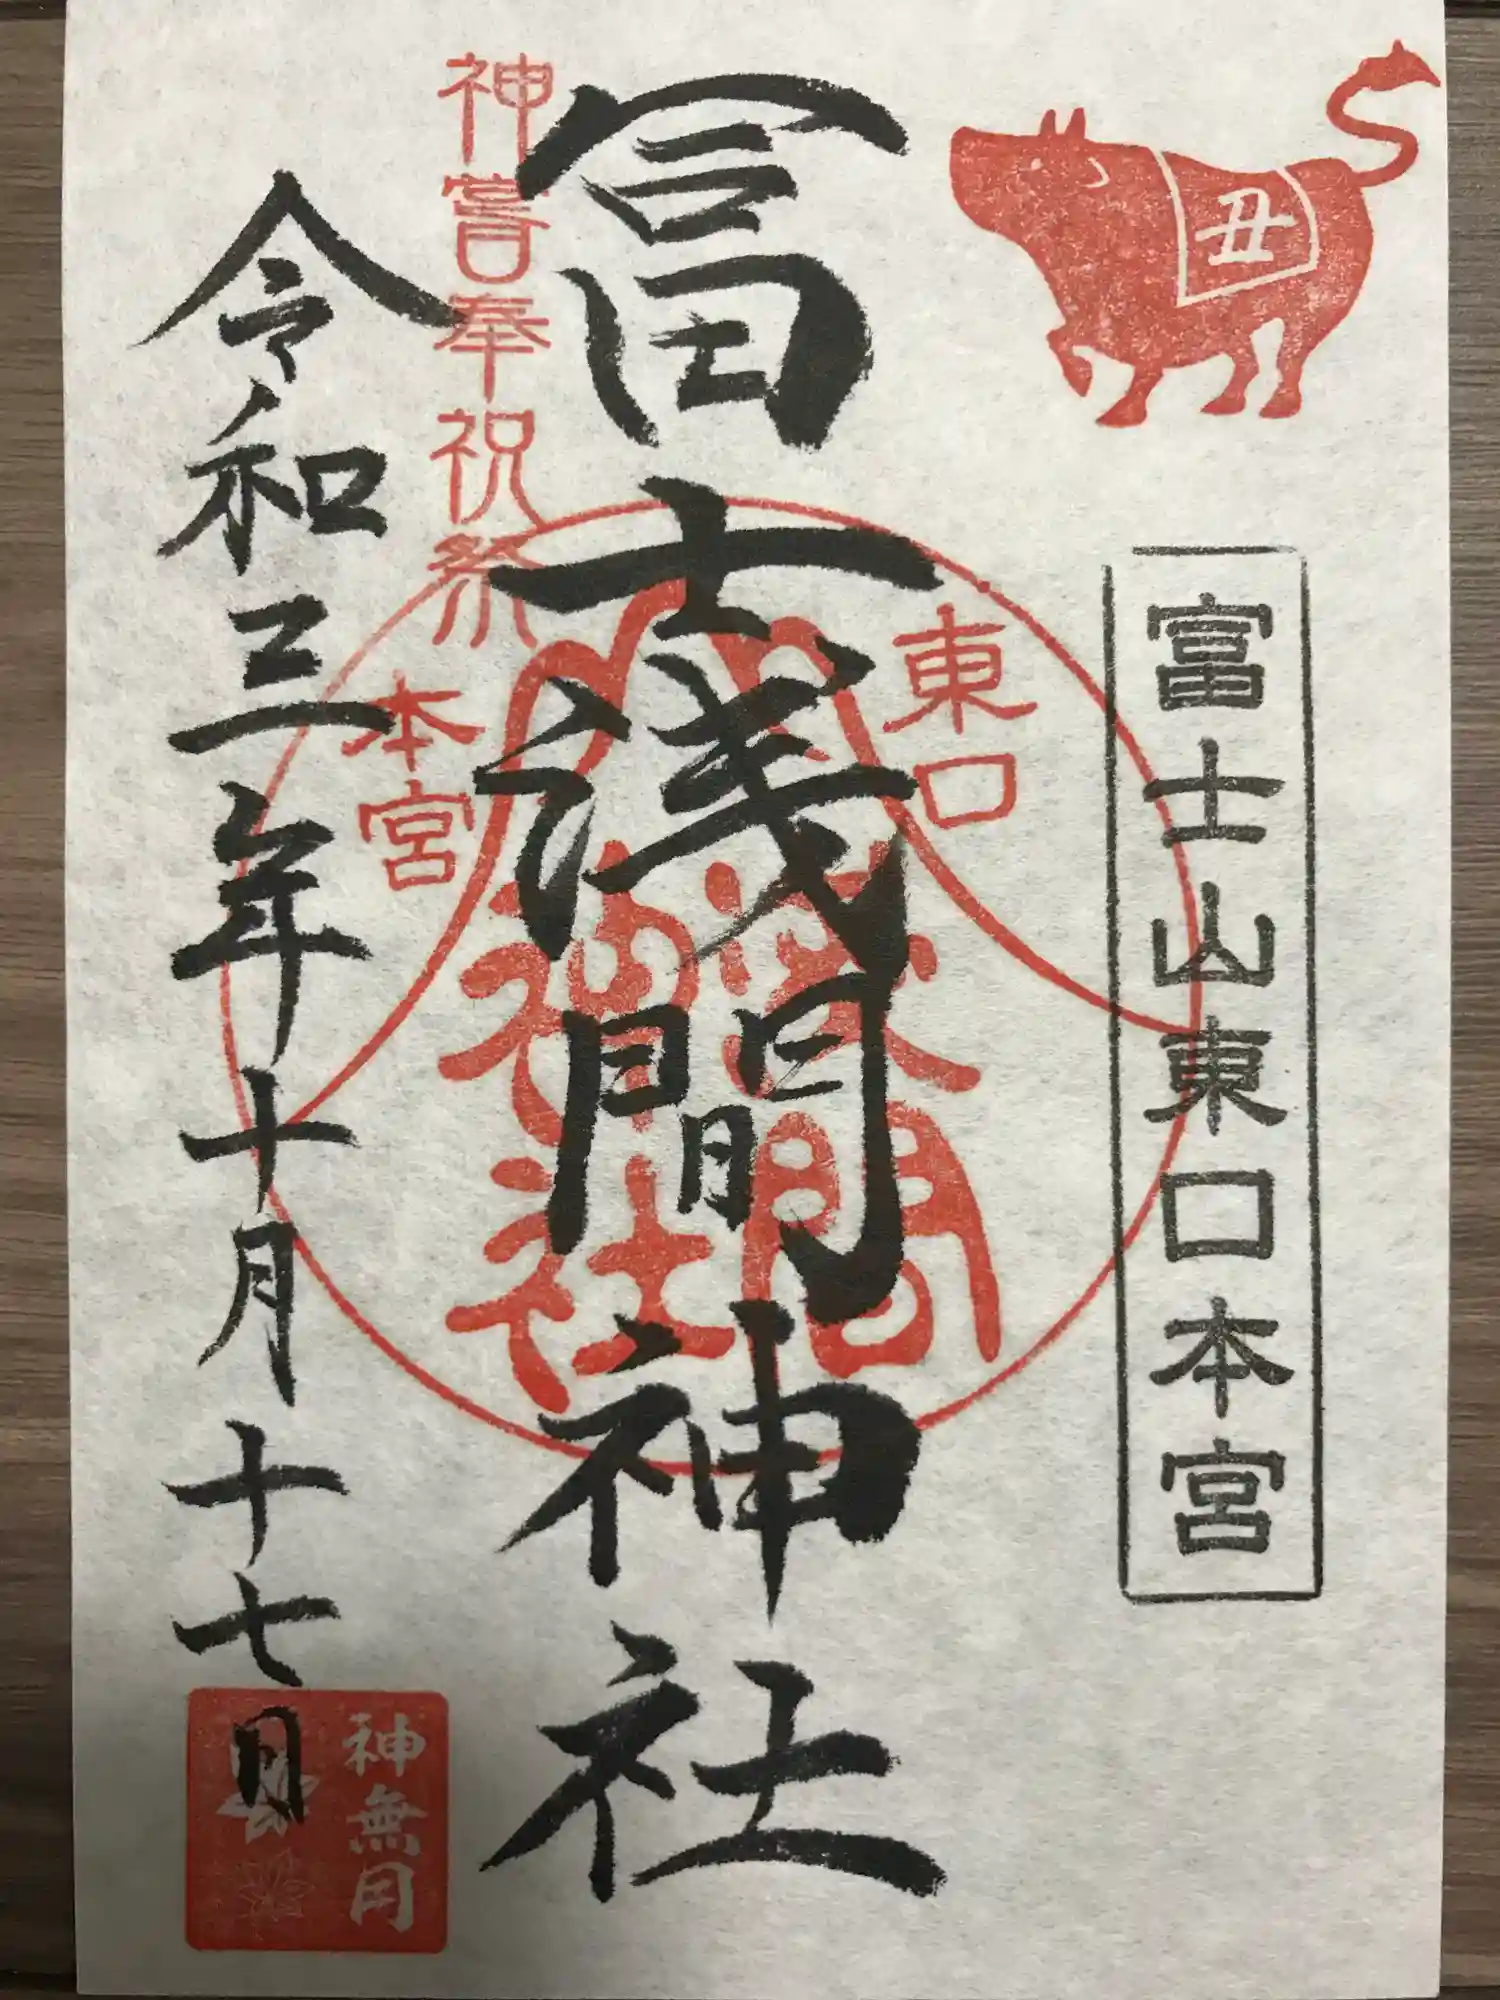 丑
富士山東口本宮
冨士浅間神社
東口
本宮
浅間
神社
神嘗奉祝祭
令和三年十月十七日
神無月